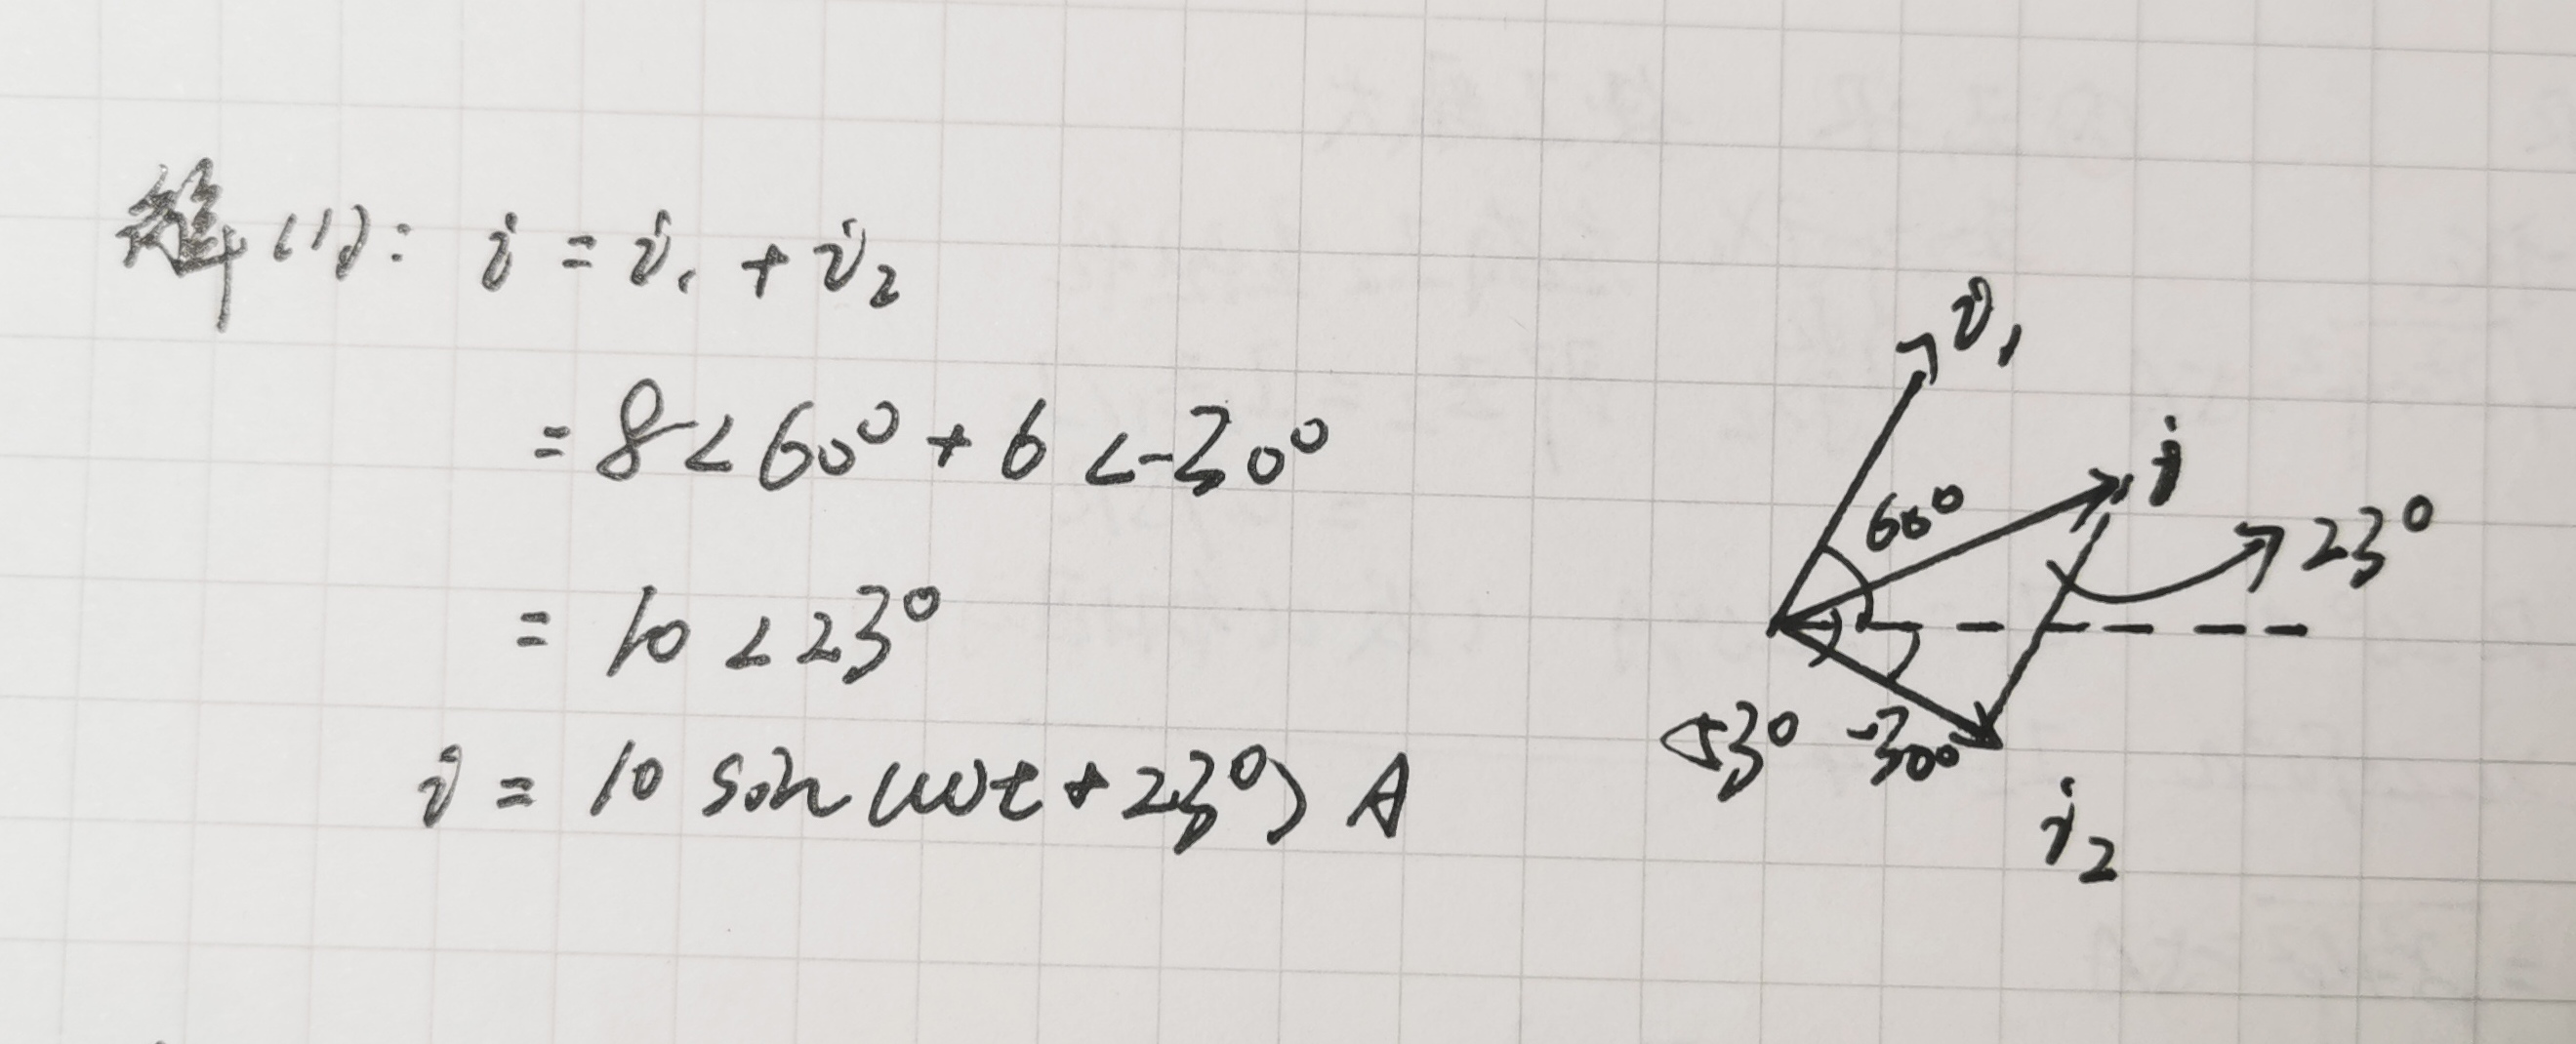 解(1): i = i₁ + i₂
= 8<60° + 6<-30°
= 10<23°
i = 10 sin(wt+23°) A
i₁
i
60°
23°
53°
-30°
i₂